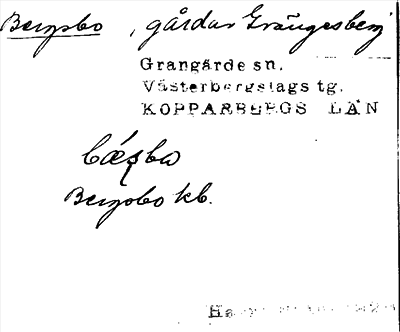 Bergsbo, gårdar Grängesberg
Grangärde sn.
Västerbergslags tg.
KOPPARBERGS LÄN
bæ̨ʂbo
Bergsbo kb.